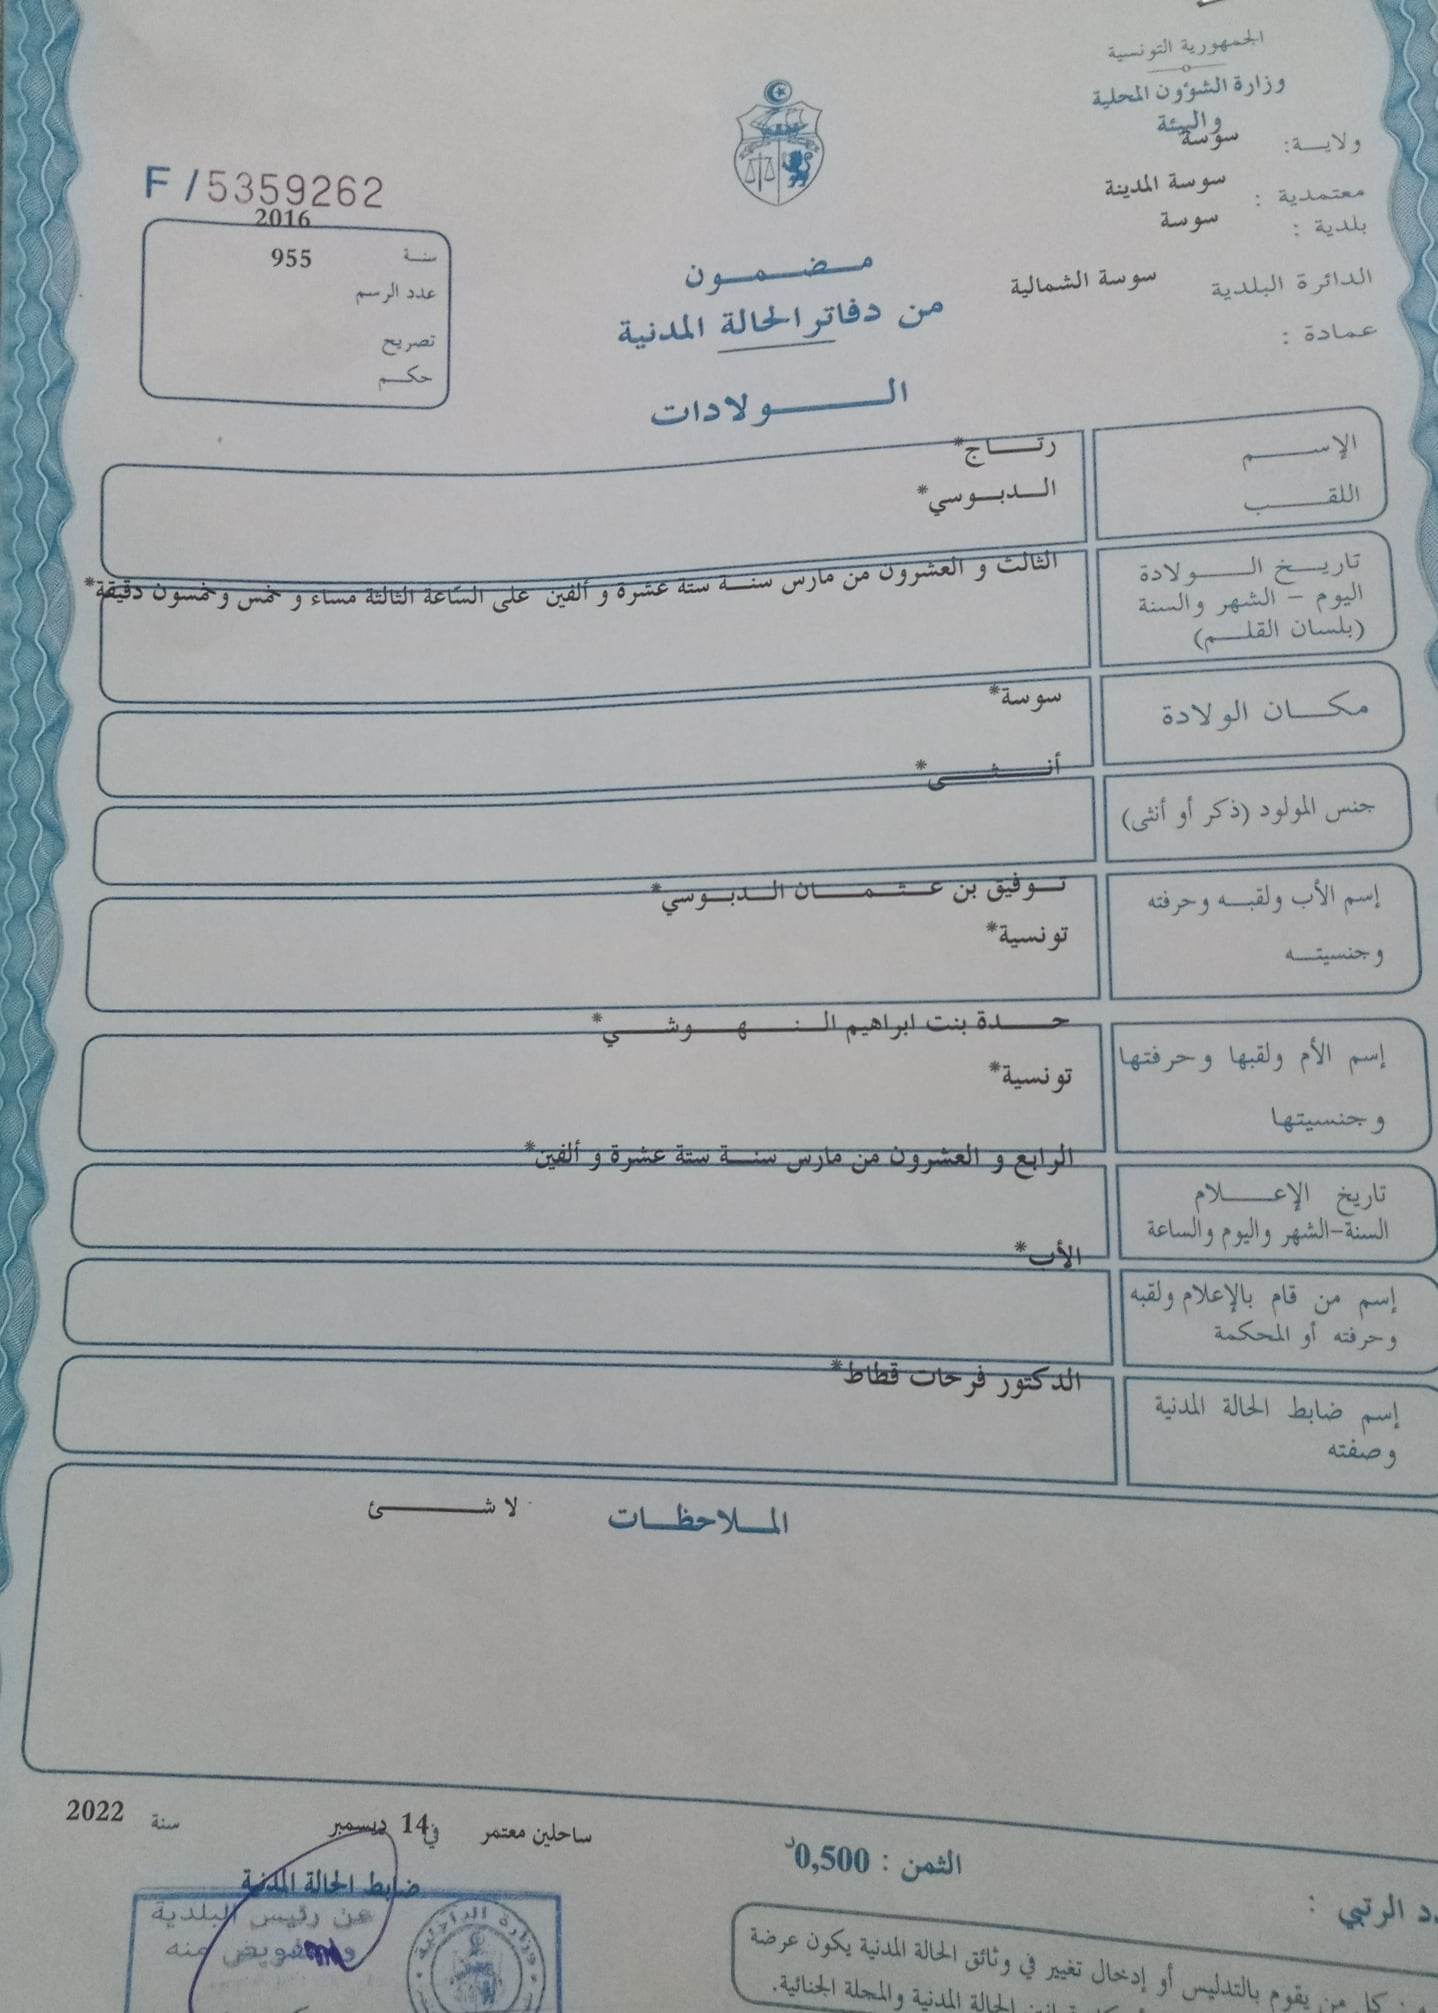 الجمهورية التونسية
وزارة الشؤون المحلية
والبيئة
ولاية: سوسة
معتمدية : سوسة المدينة
بلدية : سوسة
الدائرة البلدية سوسة الشمالية
عمادة :
F / 5359262
سنة 2016
عدد الرسم 955
تصريح
حكم
مضمون
من دفاتر الحالة المدنية
الولادات
الإسم رتاج*
اللقب الدبوسي*
تاريخ الولادة الثالث و العشرون من مارس سنة ستة عشرة و ألفين على الساعة الثالثة مساء و خمس وخمسون دقيقة*
اليوم - الشهر والسنة
(بلسان القلم)
مكان الولادة سوسة*
جنس المولود (ذكر أو أنثى) أنثى*
إسم الأب ولقبه وحرفته توفيق بن عثمان الدبوسي*
وجنسيته تونسية*
إسم الأم ولقبها وحرفتها حدة بنت ابراهيم النهوشي*
وجنسيتها تونسية*
تاريخ الإعلام الرابع و العشرون من مارس سنة ستة عشرة و ألفين*
السنة-الشهر واليوم والساعة
إسم من قام بالإعلام ولقبه الأب*
وحرفته أو المحكمة
إسم ضابط الحالة المدنية الدكتور فرحات قطاط*
وصفته
الملاحظات لا شئ
ساحلين معتمر في 14 ديسمبر سنة 2022
ضابط الحالة المدنية
عن رئيس البلدية
وبتفويض منه
وزارة الداخلية
الثمن : 0,500د
الرتبي :
كل من يقوم بالتدليس أو إدخال تغيير في وثائق الحالة المدنية يكون عرضة
الحالة المدنية والمجلة الجنائية.